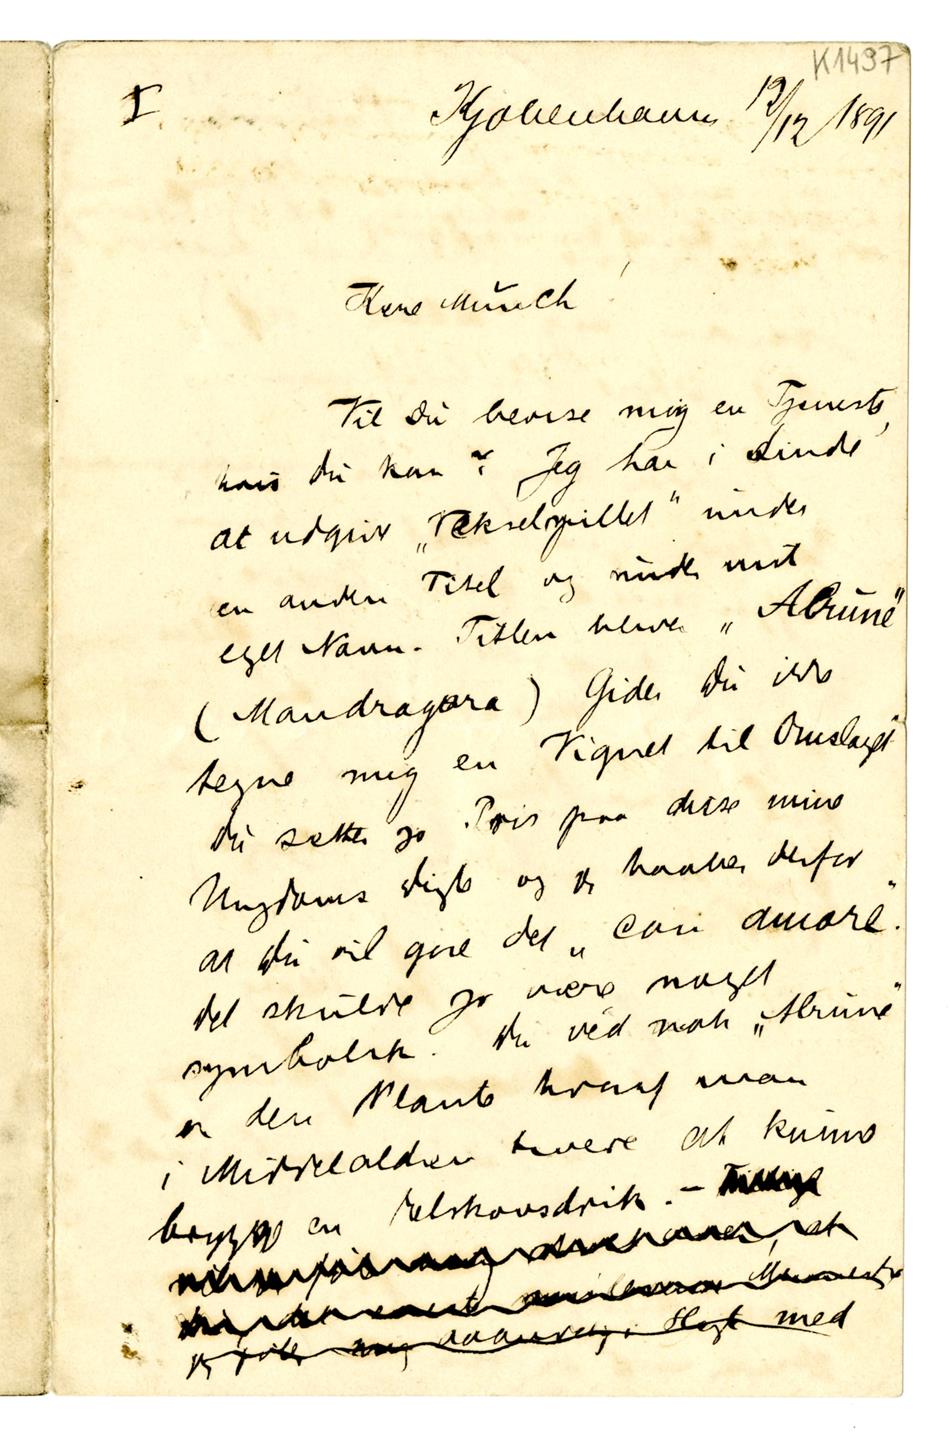 K1497
I
Kjøbenhavn 12/12 1891
Kære Münch!
Vil Du bevise mig en Tjeneste,
hvis Du kan? Jeg har i Sinde
at udgive „Vekselspillet" under
en anden Titel og under mit
eget Navn. Titlen bliver „Alrune"
(Mandragora) Gider Du ikke
tegne mig en Vignet til Omslaget
Du sætter jo Pris paa disse mine
Ungdoms Digte og jeg haaber derfor
at Du vil gøre det „con amore".
det skulde jo være noget
symbolsk. Du véd nok „Alrune"
er den Plante hvoraf man
i Middelalderen troede at kunne
brygge en Elskovsdrik. –
jeg føler mig i Slægt med